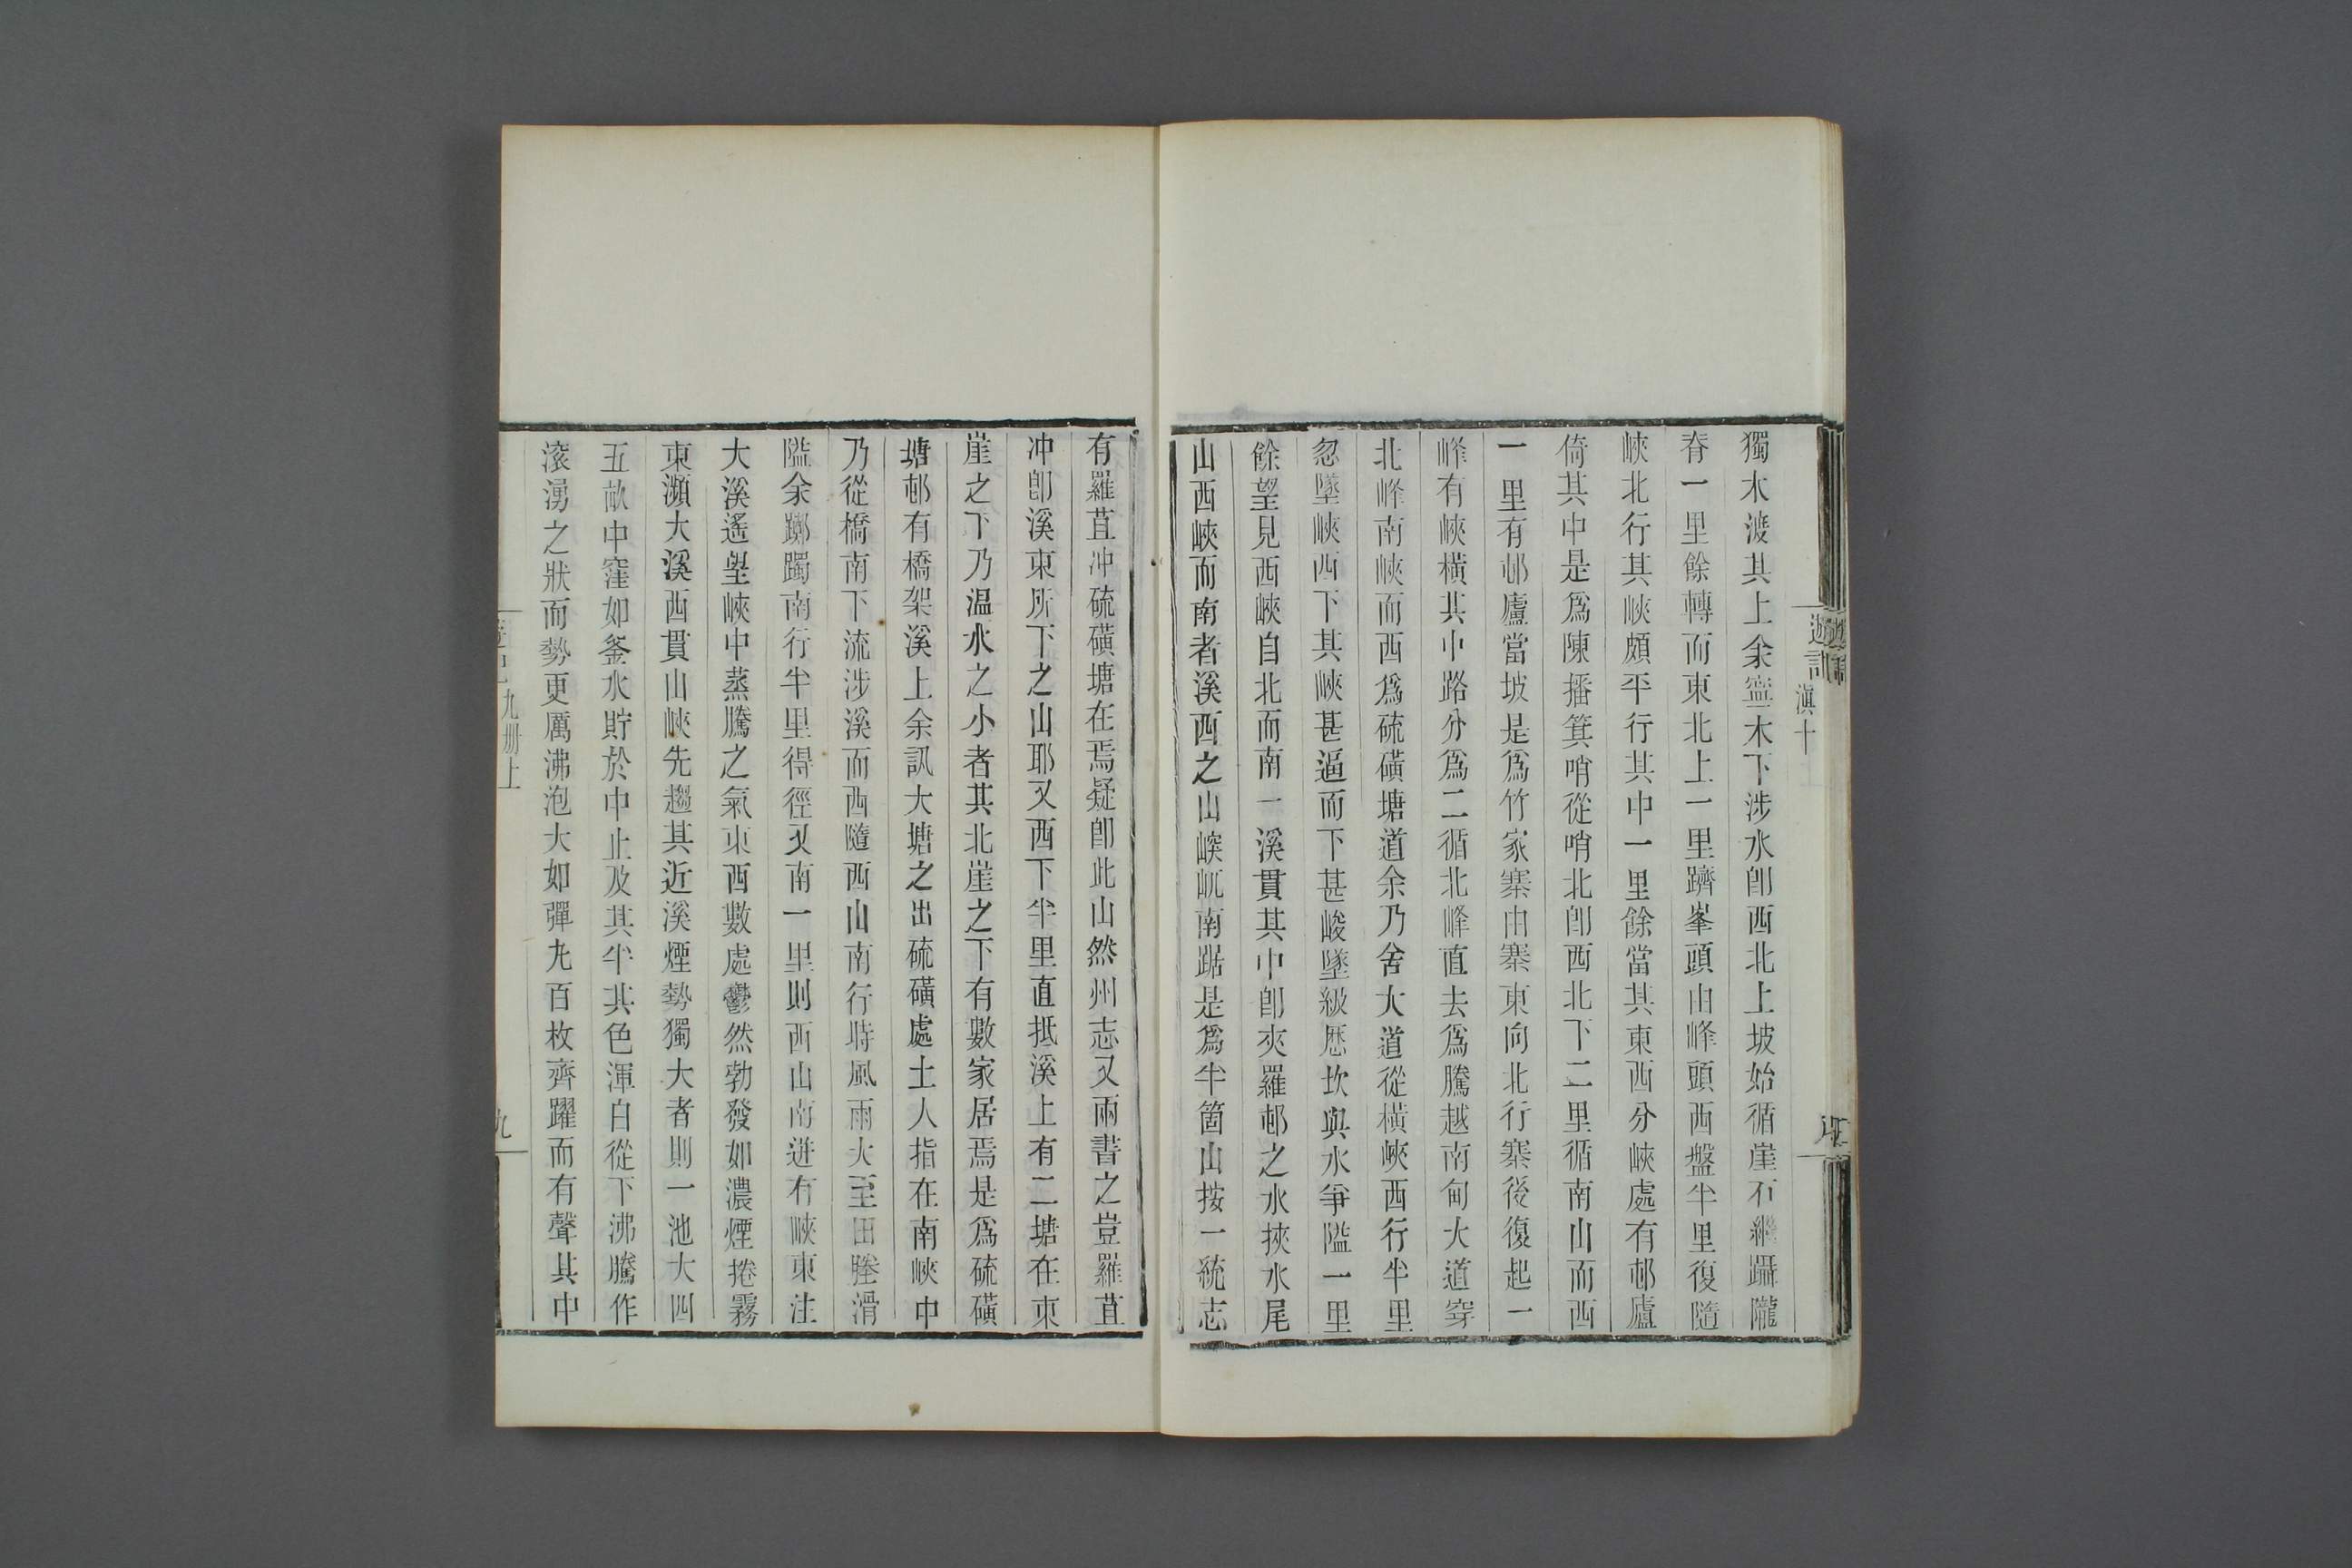 遊記 滇十
獨木渡其上余寧木下涉水卽西北上坡始循崖石繼躡隴
脊一里餘轉而東北上一里躋峯頭由峰頭西盤半里復隨
峽北行其峽頗平行其中一里餘當其東西分峽處有邨廬
倚其中是爲陳播箕哨從哨北卽西北下二里循南山而西
一里有邨廬當坡是爲竹家寨由寨東向北行寨後復起一
峰有峽橫其中路分爲二循北峰直去爲騰越南甸大道穿
北峰南峽而西爲硫磺塘道余乃舍大道從橫峽西行半里
忽墜峽西下其峽甚逼而下甚峻墜級歷坎與水爭隘一里
餘望見西峽自北而南一溪貫其中卽夾羅邨之水挾水尾
山西峽而南者溪西之山㠔屼南踞是爲半箇山按一統志
有羅苴冲硫磺塘在焉疑卽此山然州志又兩書之豈羅苴
冲卽溪東所下之山耶又西下半里直抵溪上有二塘在東
崖之下乃温水之小者其北崖之下有數家居焉是爲硫磺
塘邨有橋架溪上余訊大塘之出硫磺處土人指在南峽中
乃從橋南下流涉溪而西隨西山南行時風雨大至田塍滑
隘余躑躅南行半里得徑又南一里則西山南迸有峽東注
大溪遙望峽中蒸騰之氣東西數處鬱然勃發如濃煙捲霧
東瀕大溪西貫山峽先趨其近溪煙勢獨大者則一池大四
五畝中窪如釜水貯於中止及其半其色渾白從下沸騰作
滚湧之狀而勢更厲沸泡大如彈丸百枚齊躍而有聲其中
九册上
九